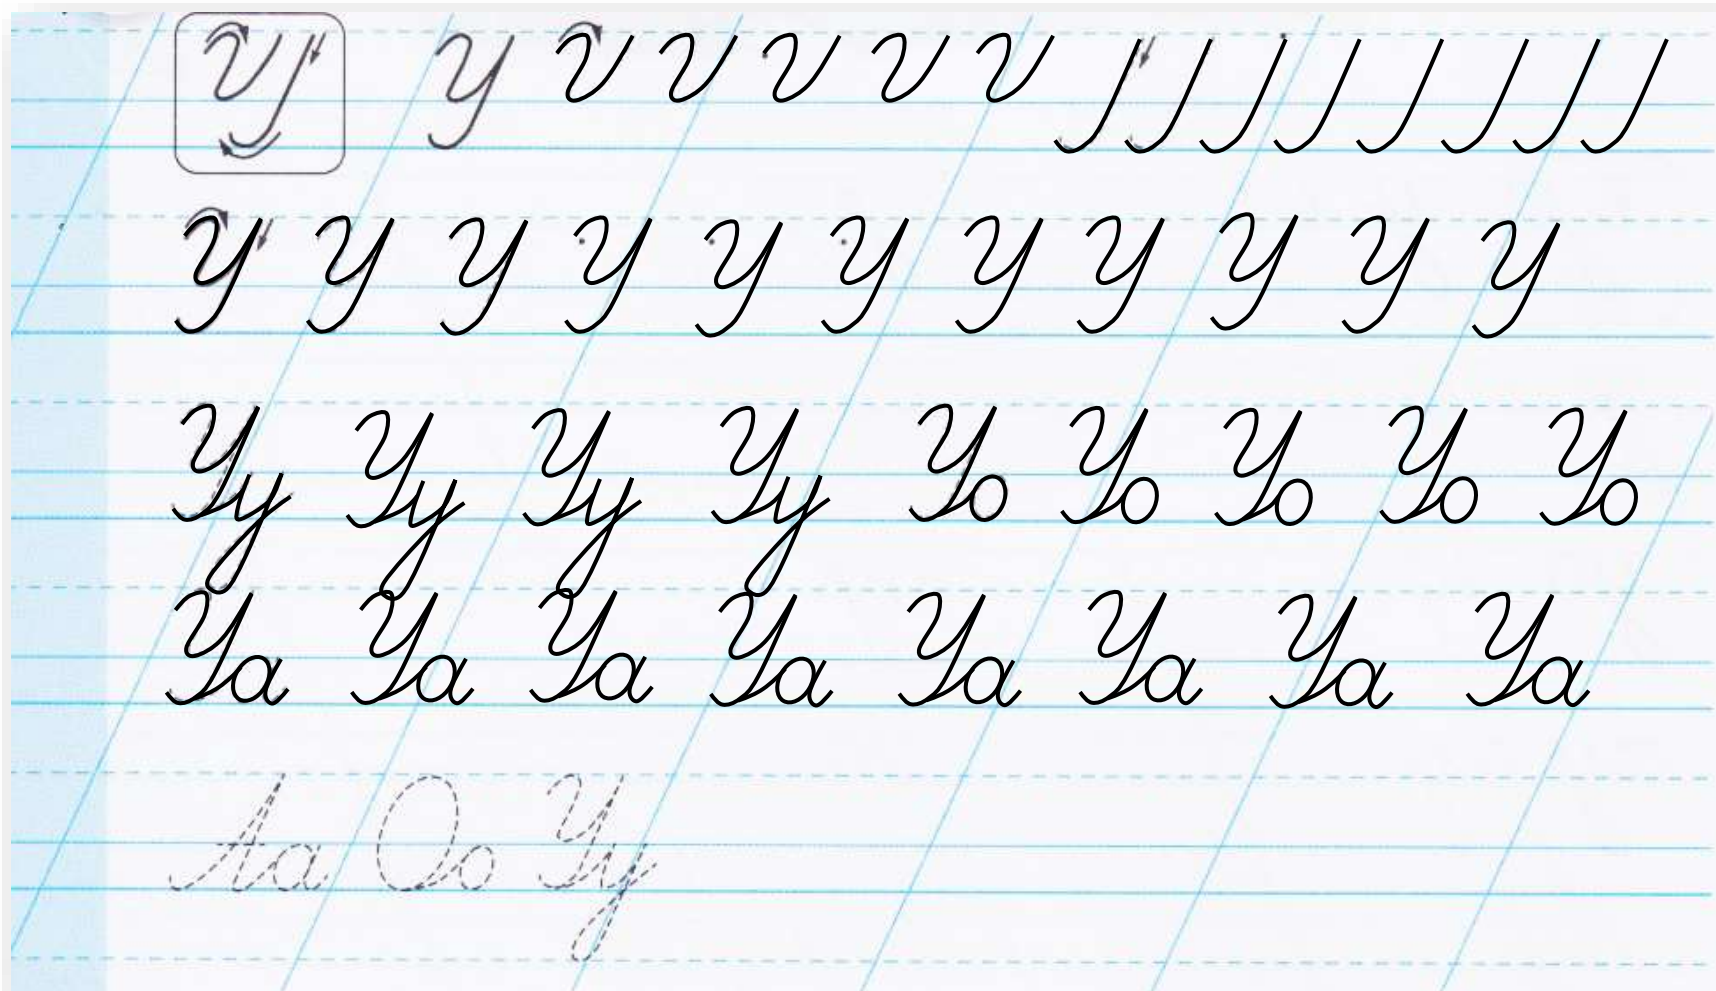 У У
У У У У У У У У У У У
Уу Уу Уу Уу Уо Уо Уо Уо Уо
Уа Уа Уа Уа Уа Уа Уа Уа
Аа Оо Уу